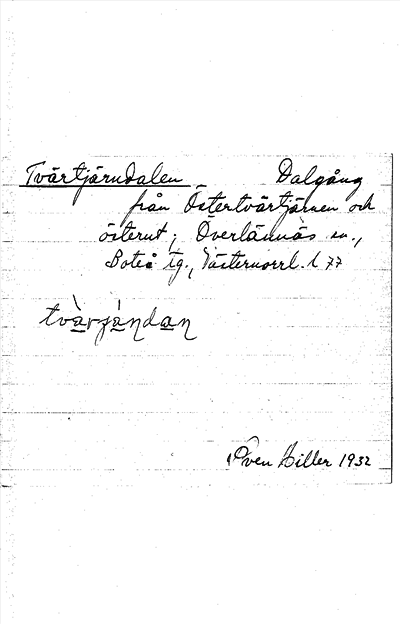 Tvärtjärndalen Dalgång
från Östertvärtjärnen och
österut; Överlännäs sn.,
Boteå tg., Västernorrl. l 77
tvärjándan
Sven Hiller 1932